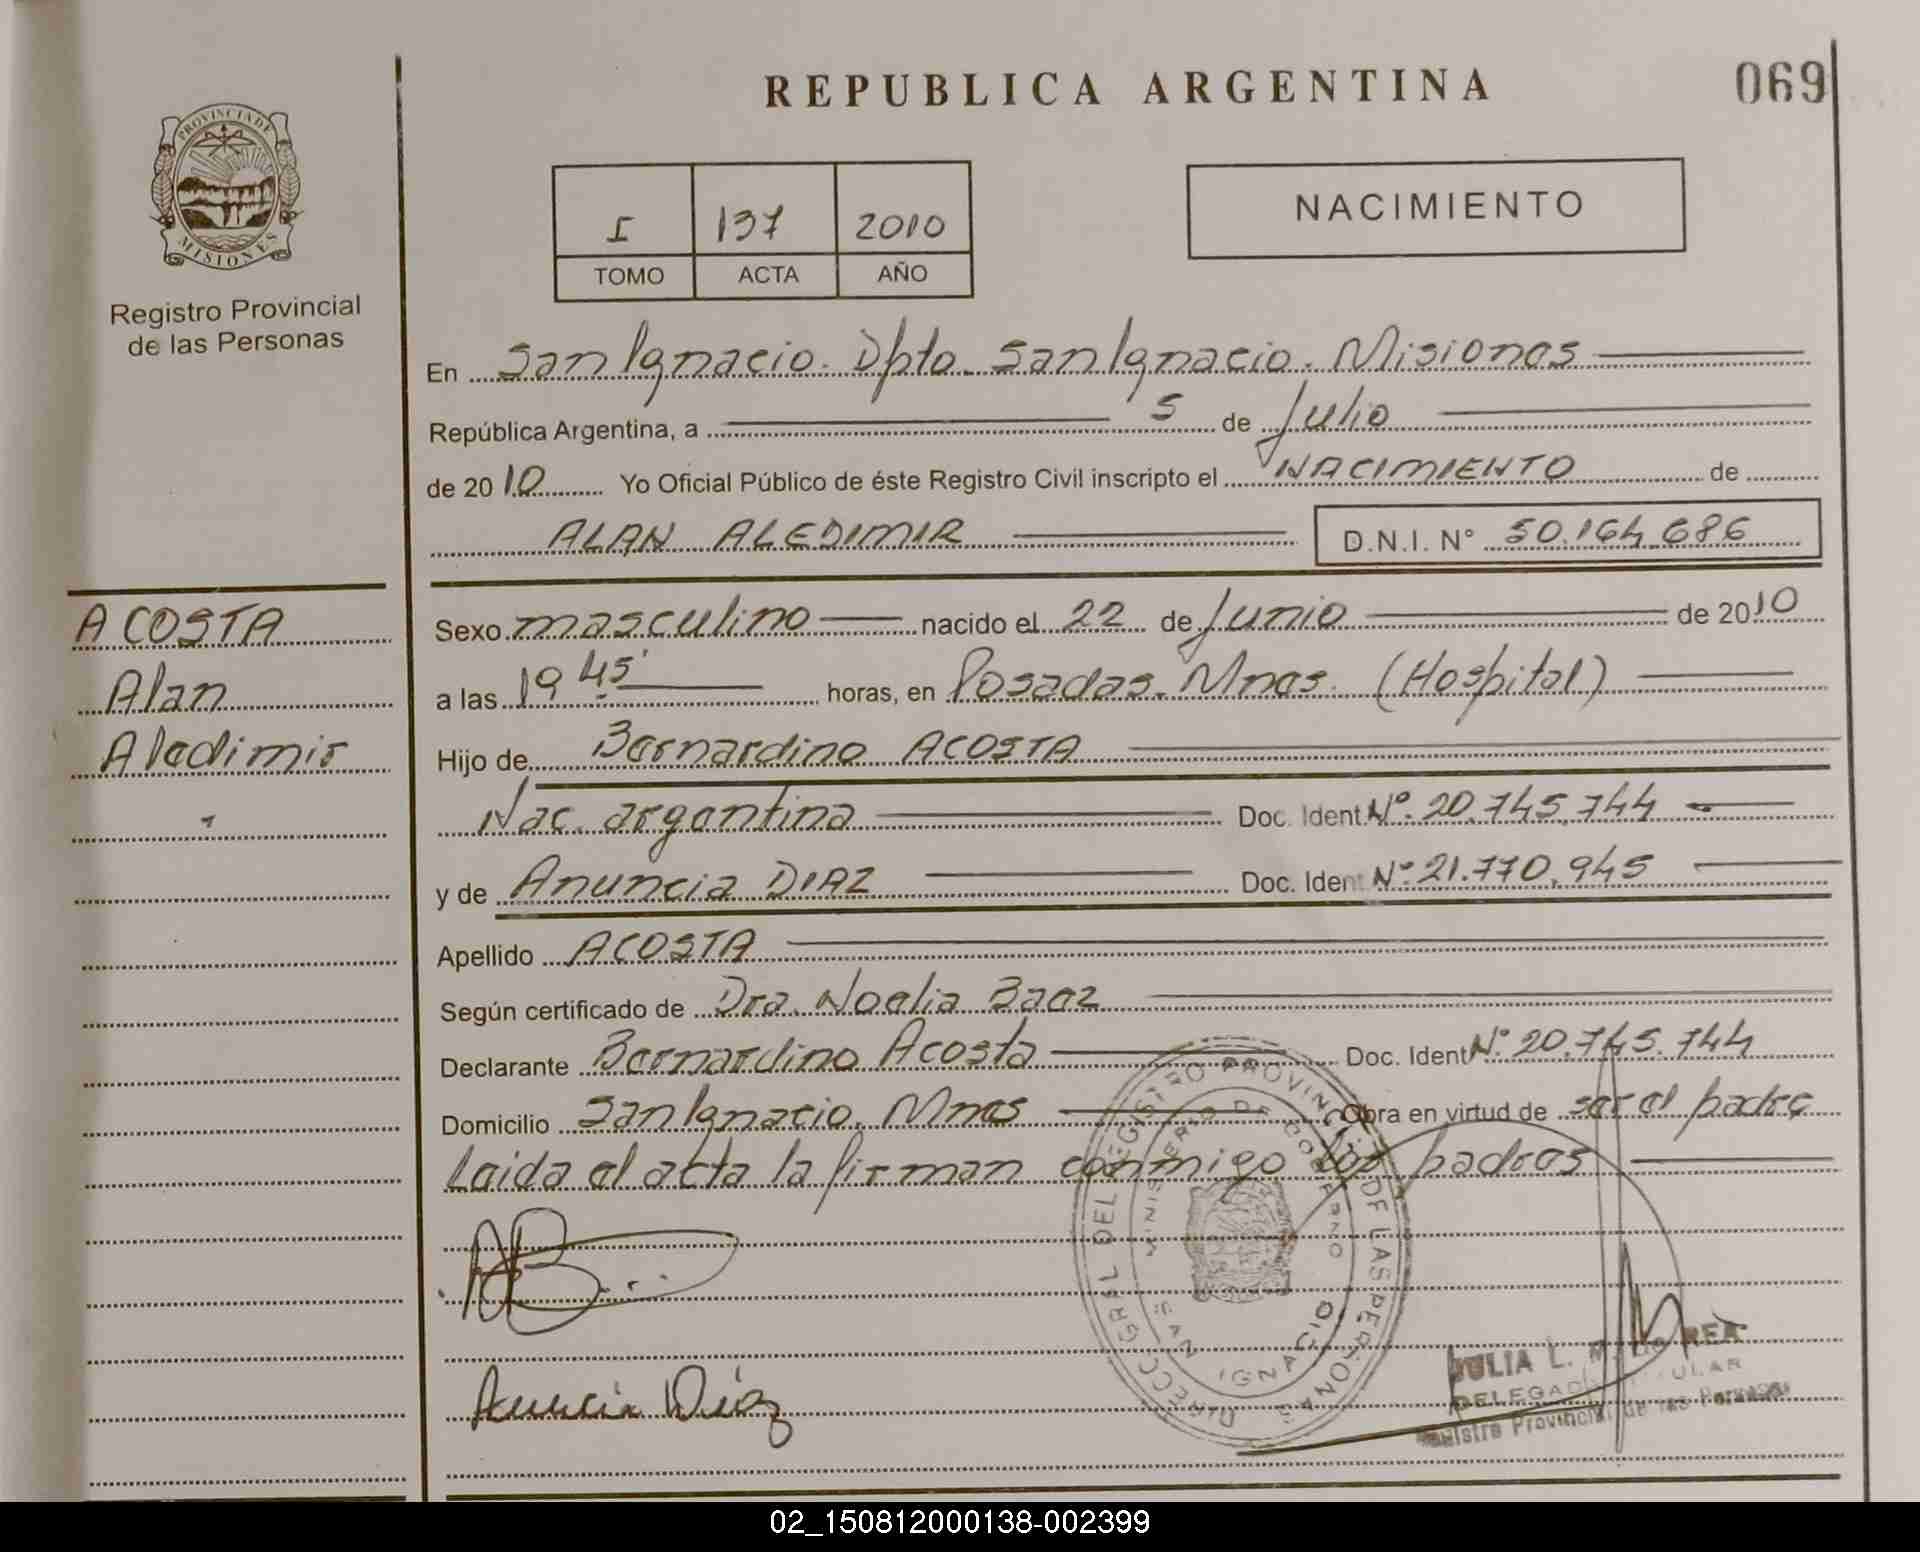 REPUBLICA ARGENTINA
069
PROVINCIA DE
MISIONES
Registro Provincial
de las Personas
I 137 2010
TOMO ACTA AÑO
NACIMIENTO
En San Ignacio. Dpto. San Ignacio. Misiones
República Argentina, a 5 de Julio
de 2010 Yo Oficial Público de éste Registro Civil inscripto el NACIMIENTO de
ALAN ALEDIMIR D.N.I. N° 50.164.686
ACOSTA
Alan
Aledimir
Sexo masculino nacido el 22 de Junio de 2010
a las 19 45' horas, en Posadas. Mnes. (Hospital)
Hijo de Bernardino ACOSTA
Nac. argentina Doc. Ident. N°. 20.745.744
y de Anuncia DIAZ Doc. Ident N°. 21.770.945
Apellido ACOSTA
Según certificado de Dra. Noelia Baez
Declarante Bernardino Acosta Doc. Ident N°. 20.745.744
Domicilio San Ignacio. Mnes Obra en virtud de ser el padre
Leida el acta la firman conmigo los padres
DIRECC GRAL DEL REGISTRO PROVINCIAL DE LAS PERSONAS
MINISTERIO DE GOBIERNO
SAN IGNACIO
Anuncia Diaz
JULIA L.
Registro Provincial de las Personas
02_150812000138-002399